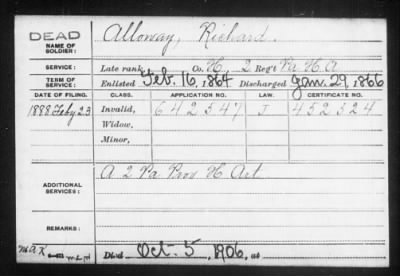 DEAD
NAME OF SOLDIER: Alloway, Richard.
SERVICE: Late rank, Co. H, 2 Reg't Pa H.A
TERM OF SERVICE: Enlisted Feb. 16, 1864 Discharged Jan. 29, 1866
DATE OF FILING. CLASS. APPLICATION NO. LAW. CERTIFICATE NO.
1888 Feby 23 Invalid, 642547 J 452324
Widow,
Minor,
ADDITIONAL SERVICES: A 2 Pa Prov H Art
REMARKS:
Died Oct. 5, 1906, at